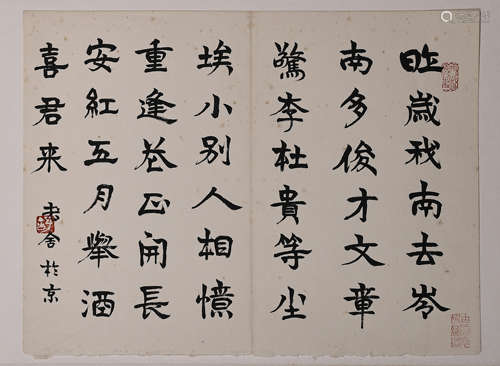 昨歲我南去岑
南多俊才文章
驚李杜貴等尘
埃小別人相憶
重逢花正開長
安紅五月舉酒
喜君来
老舍於京